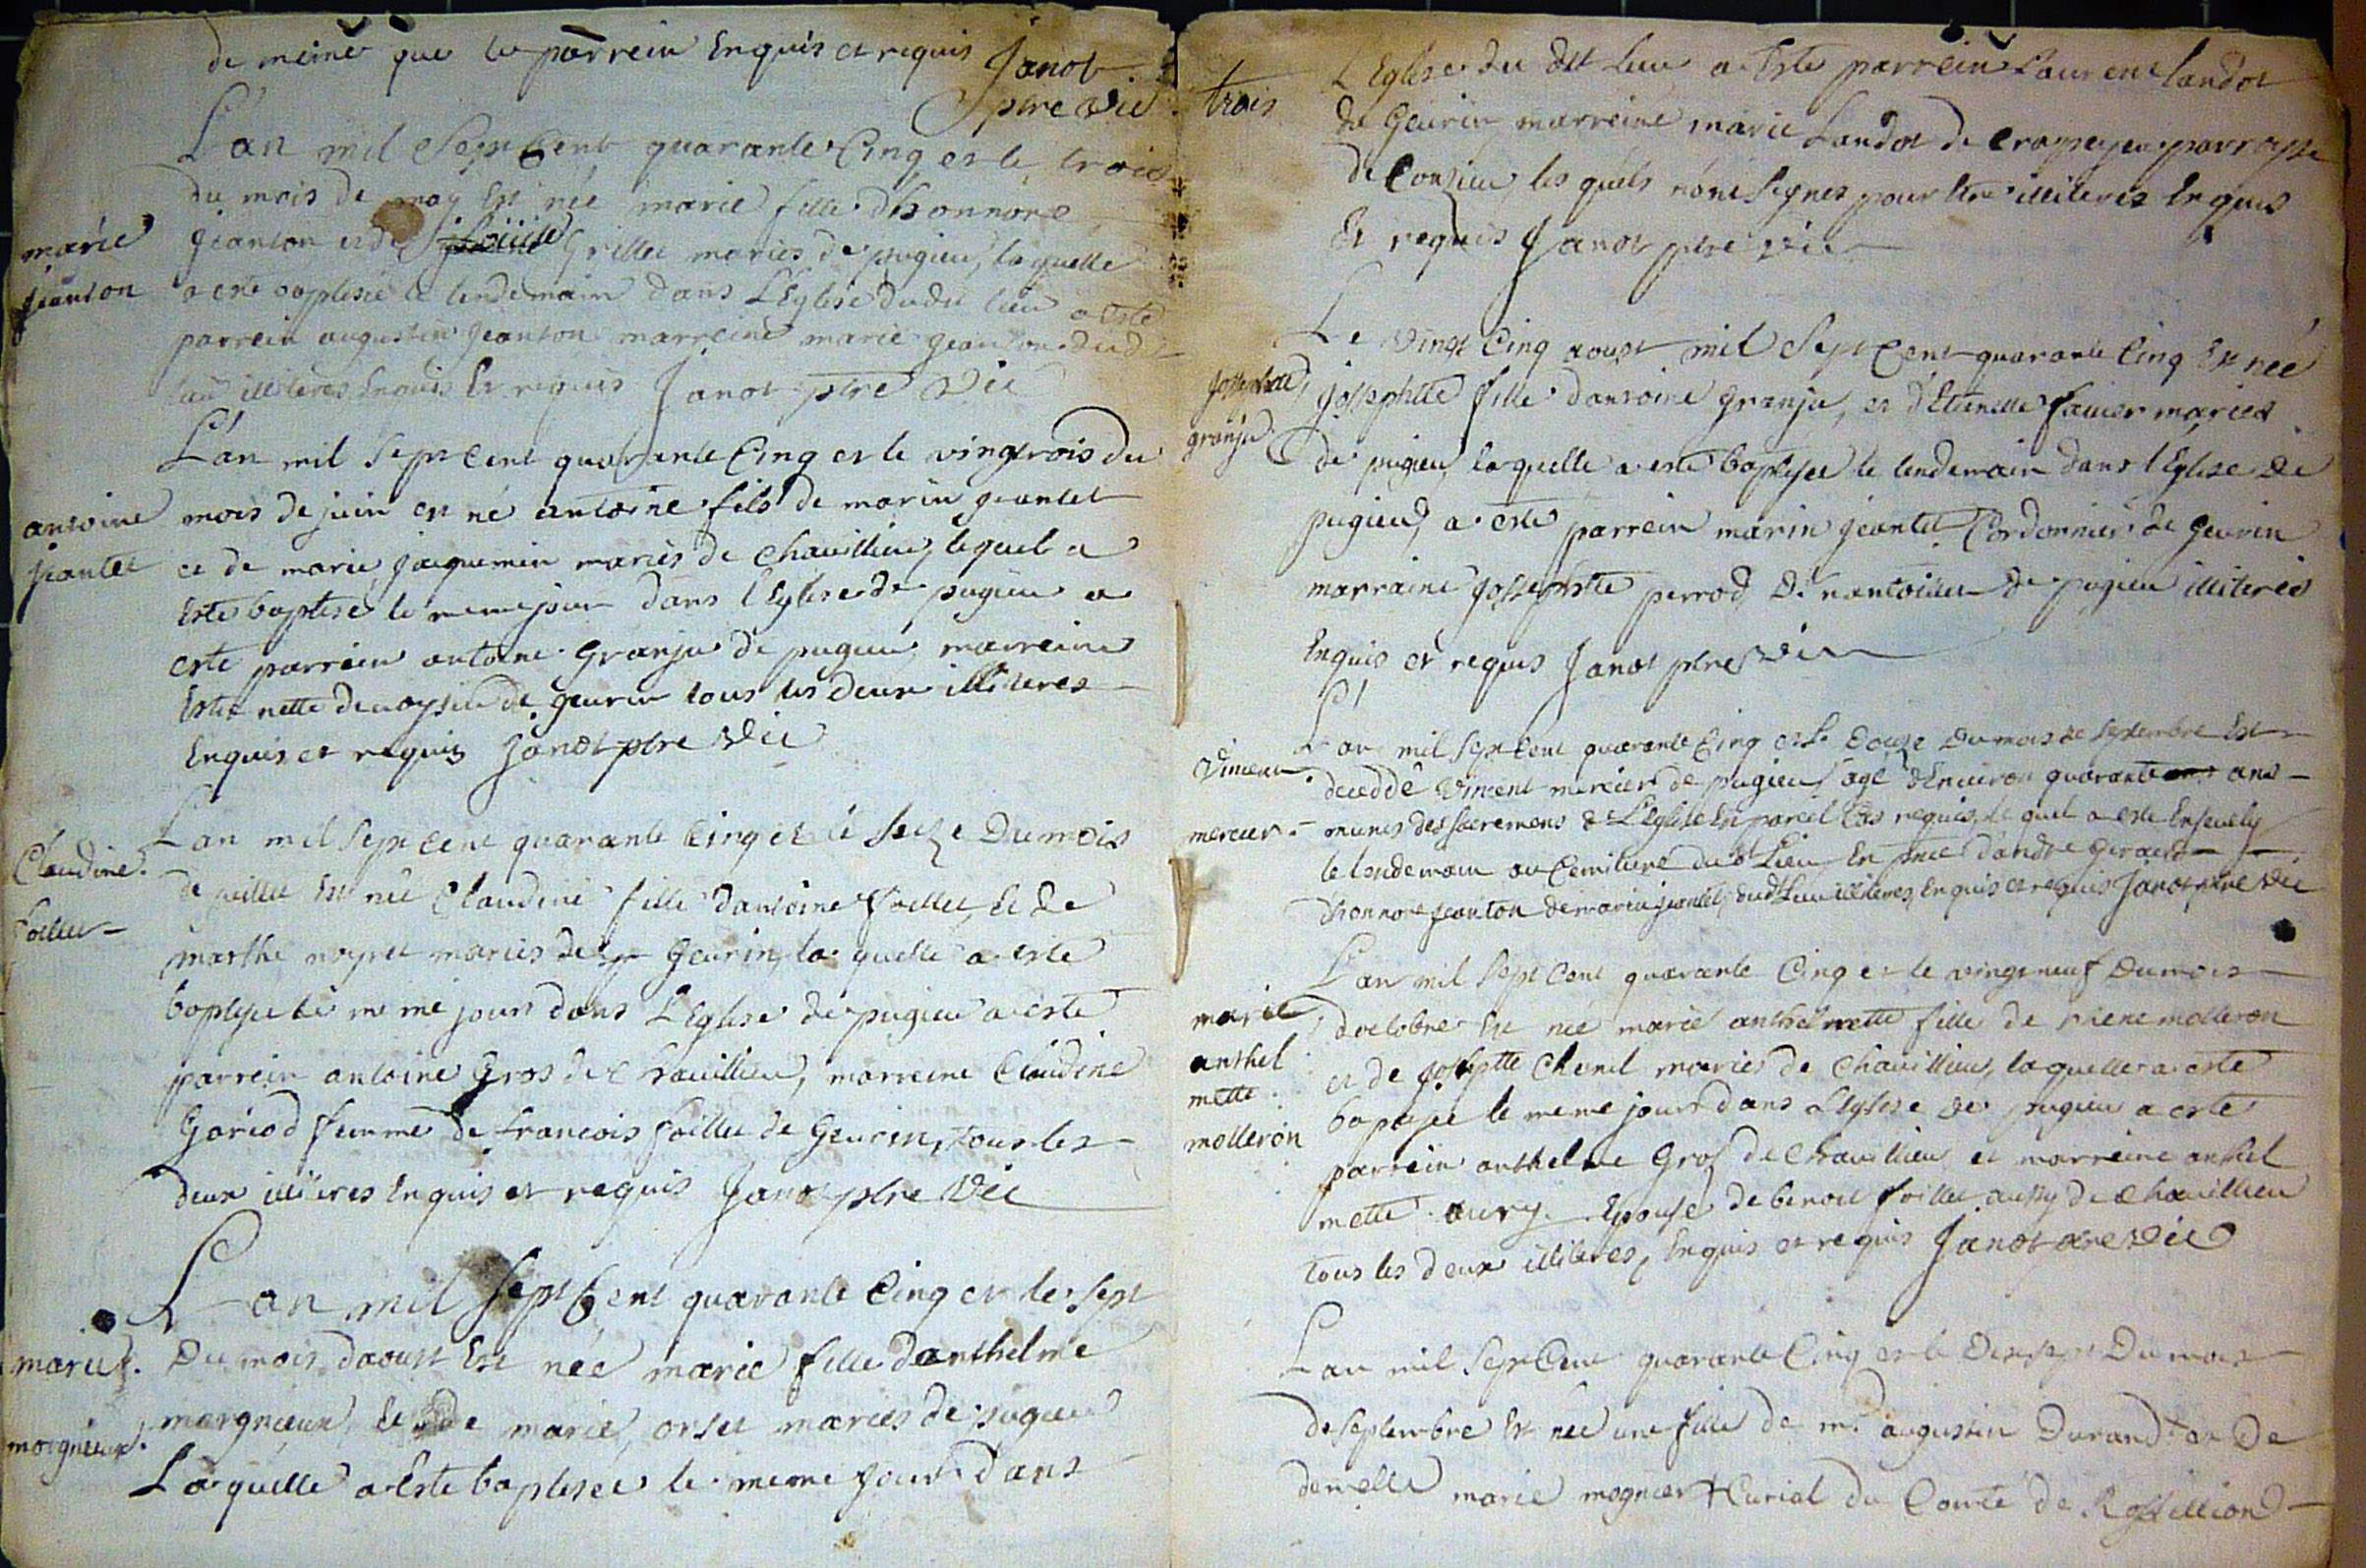 de meme que le parrein Enquis et requis Janot
ptre vic
L'an mil Sept Cent quarante Cinq et le trois
du mois de may Est née marie fille d'honnoré
marie
jeanton
jeanton et de Grillet mariés de pugieu, laquelle
a este baptisée le lendemain dans L'Eglise dudit lieu a este
parrein augustin jeanton marreine marie jeanton dudt
lieu illiteres Enquis Et requis Janot ptre vic
L'an mil Sept Cent quarante Cinq et le vingtrois du
antoine
jeantet
mois de juin est né antoine fils de marin jeantet
et de marie jaquemin mariés de Chavillieu, lequel a
Este baptisé le meme jour dans l'Eglise de pugieu a
este parrein antoine Granju de pugieu marreine
de geurin tous les deux illiteres
Enquis et requis Janot ptre Vic
L'an mil Sept cent quarante Cinq et le Seize Du mois
Claudine
foillet
de juillet Est née Claudine fille d'antoine foillet, Et De
marthe mariés de Geurin, la quelle a este
baptisée le meme jour dans L'Eglise de pugieu a este
parrein antoine Gros de Chavillieu, marreine Claudine
Goriod femme de francois foillet de Geurin, tous les
deux illiteres Enquis et requis Janot ptre Vic
L'an mil Sept Cent quarante Cinq et le Sept
marie
morgnieux
Du mois d'aoust Est née marie fille d'anthelme
morgnieux, Et de marie orset mariés de pugieu
Laquelle a Este baptisée le meme jour dans
trois
L'Eglise du dit Lieu a Este parrein Laurent Landot
de Geurin marreine marie Landot de parroisse
de Conzieu, les quels n'ont Signes pour Etre illiteres Enquis
Et requis Janot ptre vic
Le vingt Cinq aoust mil Sept Cent quarante Cinq Est née
Josephte
granju
josephte fille d'antoine granju, et d'Etiennette favier mariés
de pugieu, laquelle a este baptisée le lendemain dans l'Eglise de
pugieu, a este parrein marin jeantet Cordonnier de geurin
marraine Josephte perrod, De nantoillet de pugieu illiteres
Enquis et requis Janot ptre vic
L'an mil Sept Cent quarante Cinq et le Douze Du mois de Septembre Est
Vincent
mercier
deceddé Vincent mercier de pugieu agé d'Environ quarante ans
munis des Sacremens de L'Eglise En pareil Cas requis, le quel a este Ensevely
le lendemain au Cemitiere dudt Lieu En pnce d'andre Geraud
d'honnore jeanton de marin jeantet, dudt Lieu illiteres, Enquis et requis Janot ptre vic
L'an mil Sept Cent quarante Cinq et le vingt neuf Du mois
marie
anthel
mette
molleron
d'octobre Est née marie anthelmette fille de molleron
et de Josephte Chenel mariés de Chavillieu, laquelle a este
baptisée le meme jour dans L'Eglise de pugieu a este
parrein anthelme Gros de Chavillieu et marreine anthel
mette aury Epouse de benoit foillet aussy de Chavillieu
tous les deux illiteres, Enquis et requis Janot ptre Vic
L'an mil Sept Cent quarante Cinq et le Dix Sept Du mois
de Septembre Est née une fille de mr augustin Durand et De
demelle marie mognier Curial du Comté de Rossillion